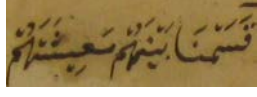 قَسَمْنَا بَيْنَهُمْ مَعِيشَتَهُمْ